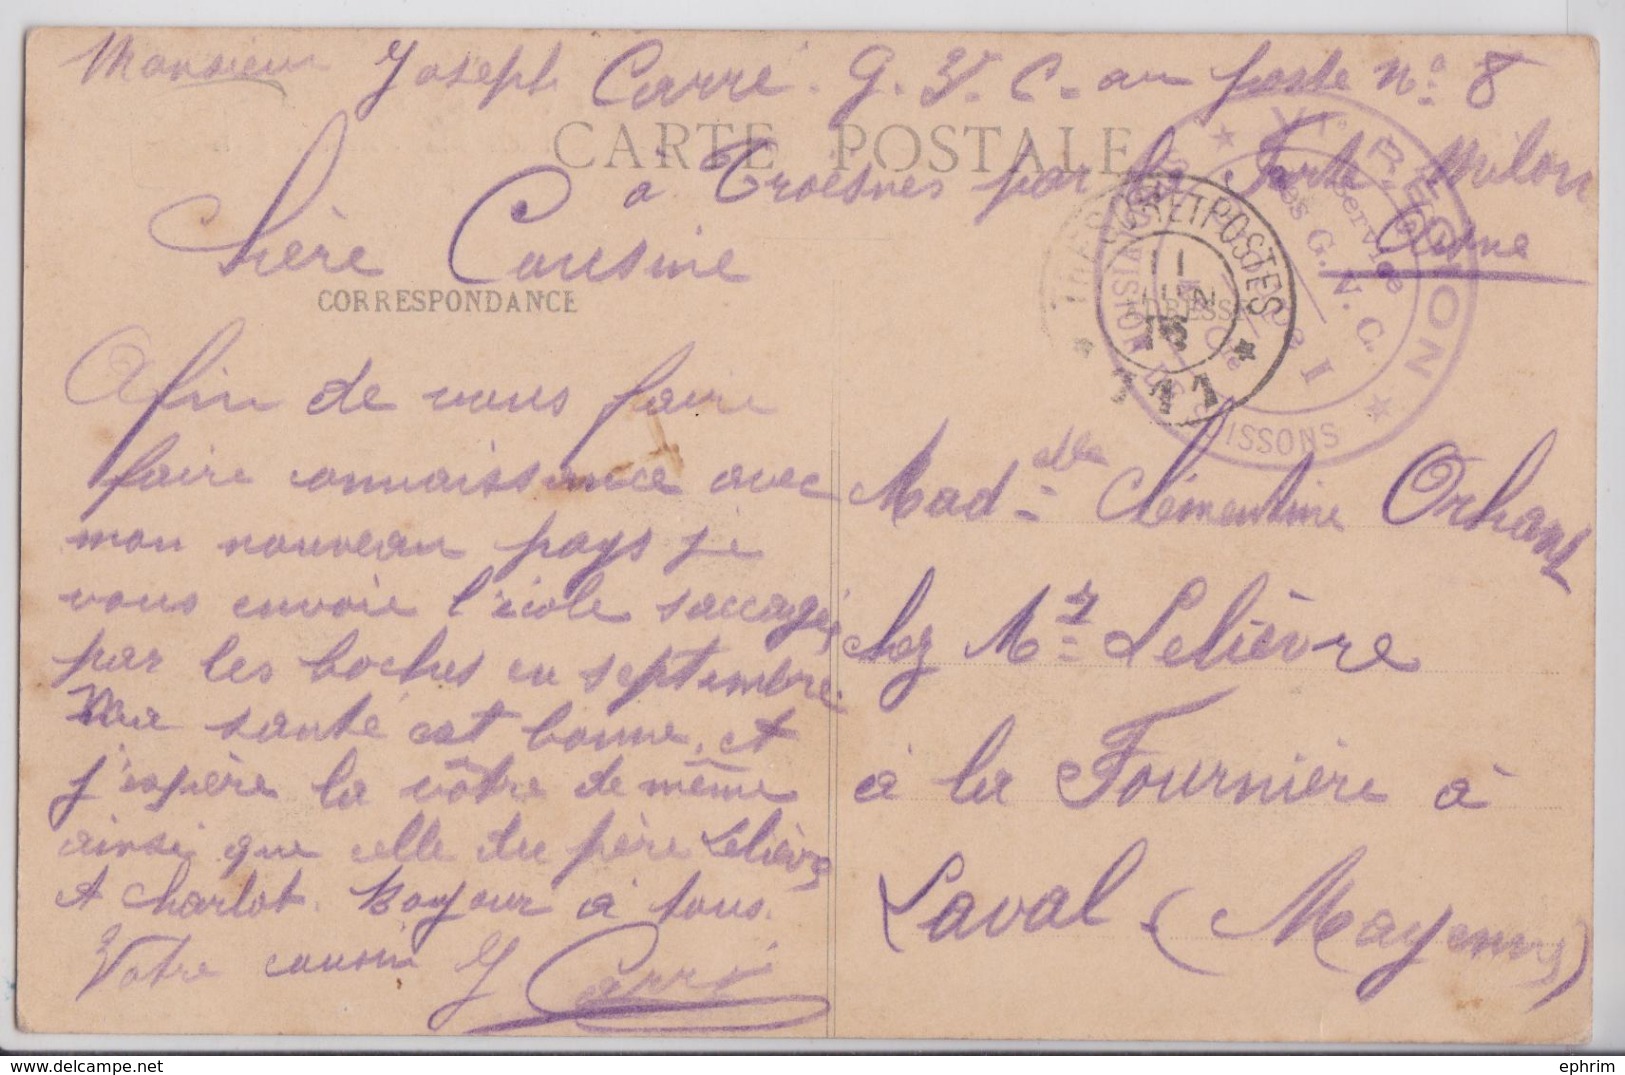 Monsieur Joseph Carré. G. V. C. au poste n° 8
CARTE POSTALE
à Troesnes par la Ferté-Milon
Aisne
Chère Cousine
CORRESPONDANCE
Afin de vous faire
faire connaissance avec
mon nouveau pays je
vous envoie l'école saccagée
par les boches en septembre.
Ma santé est bonne, et
j'espère la vôtre de même
ainsi que celle du père Lelièvre
et Charlot. Bonjour à tous.
Votre cousin J Carré
TRESOR ET POSTES
1
15
* 111 *
VIe REGION
Service
des G. V. C.
SUBDIVISION DE SOISSONS
Madelle Clémentine Orhant
chez Mr Lelièvre
à la Fournière à
Laval (Mayenne)
ephrim